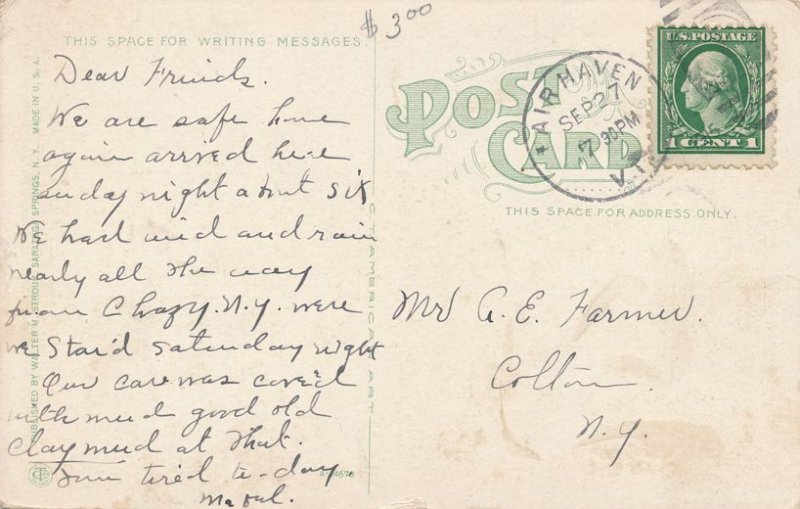 $3.00
THIS SPACE FOR WRITING MESSAGES.
Dear Friends.
We are safe home
again arrived here
sunday night about six
We had wind and rain
nearly all the way
from Chazy. N.Y. were
we Stai'd Saturday night
Our care was cover'd
with mud good old
clay mud at that.
Am tired to-day
POST CARD
THIS SPACE FOR ADDRESS ONLY.
FAIRHAVEN
SEP 27
7 30 PM
VT.
U.S. POSTAGE
1 CENT 1
Mr A. E. Farmer.
Colton
N.Y.
PUBLISHED BY WALTER SARATOGA SPRINGS, N. Y. MADE IN U. S. A.
C. T. AMERICAN ART